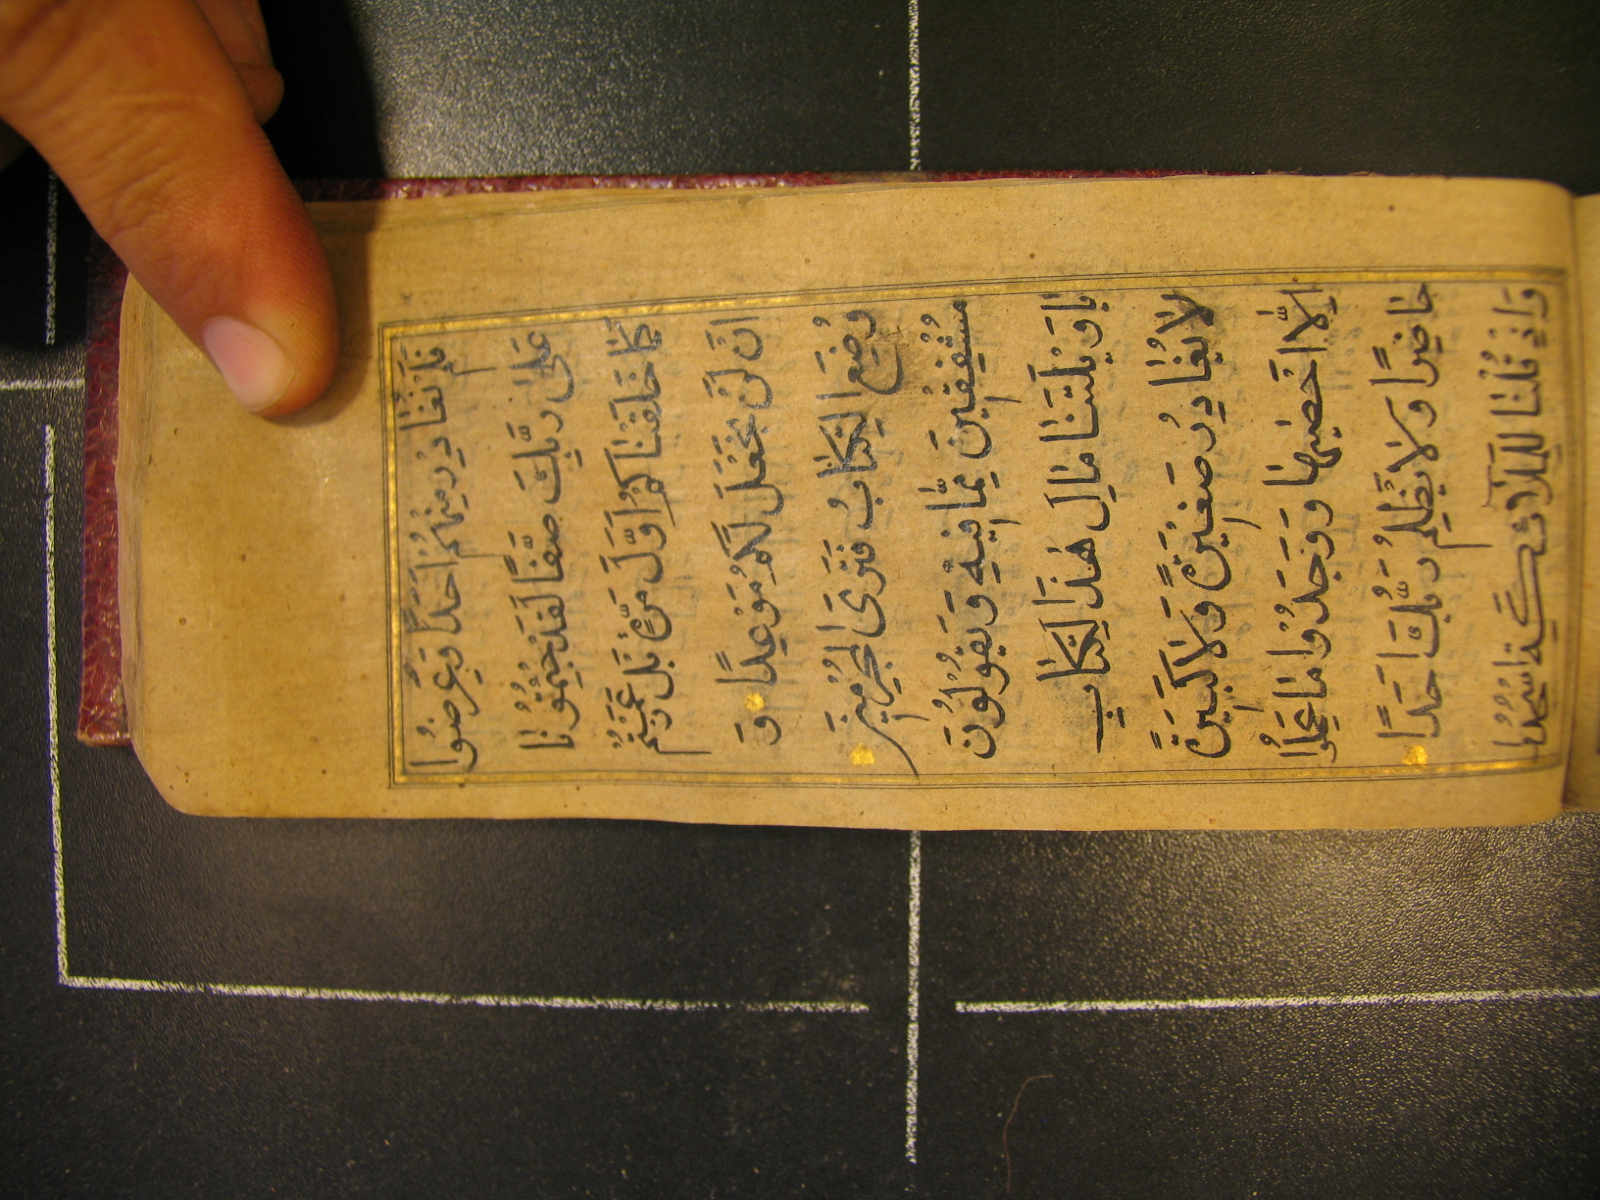 فَلَمْ نُغَادِرْ مِنْهُمْ اَحَدًا وَعُرِضُوا
عَلٰى رَبِّكَ صَفًّا لَقَدْ جِئْتُمُونَا
كَمَا خَلَقْنَاكُمْ اَوَّلَ مَرَّةٍ بَلْ زَعَمْتُمْ
اَنْ لَنْ نَجْعَلَ لَكُمْ مَوْعِدًا وَ
وُضِعَ الْكِتَابُ فَتَرَى الْمُجْرِمِينَ
مُشْفِقِينَ مِمَّا فِيهِ وَيَقُولُونَ
يَاوَيْلَتَنَا مَالِ هٰذَا الْكِتَابِ
لَا يُغَادِرُ صَغِيرَةً وَلَا كَبِيرَةً
اِلَّا اَحْصٰيهَا وَوَجَدُوا مَا عَمِلُوا
حَاضِرًا وَلَا يَظْلِمُ رَبُّكَ اَحَدًا
وَاِذْ قُلْنَا لِلْمَلَائِكَةِ اسْجُدُوا